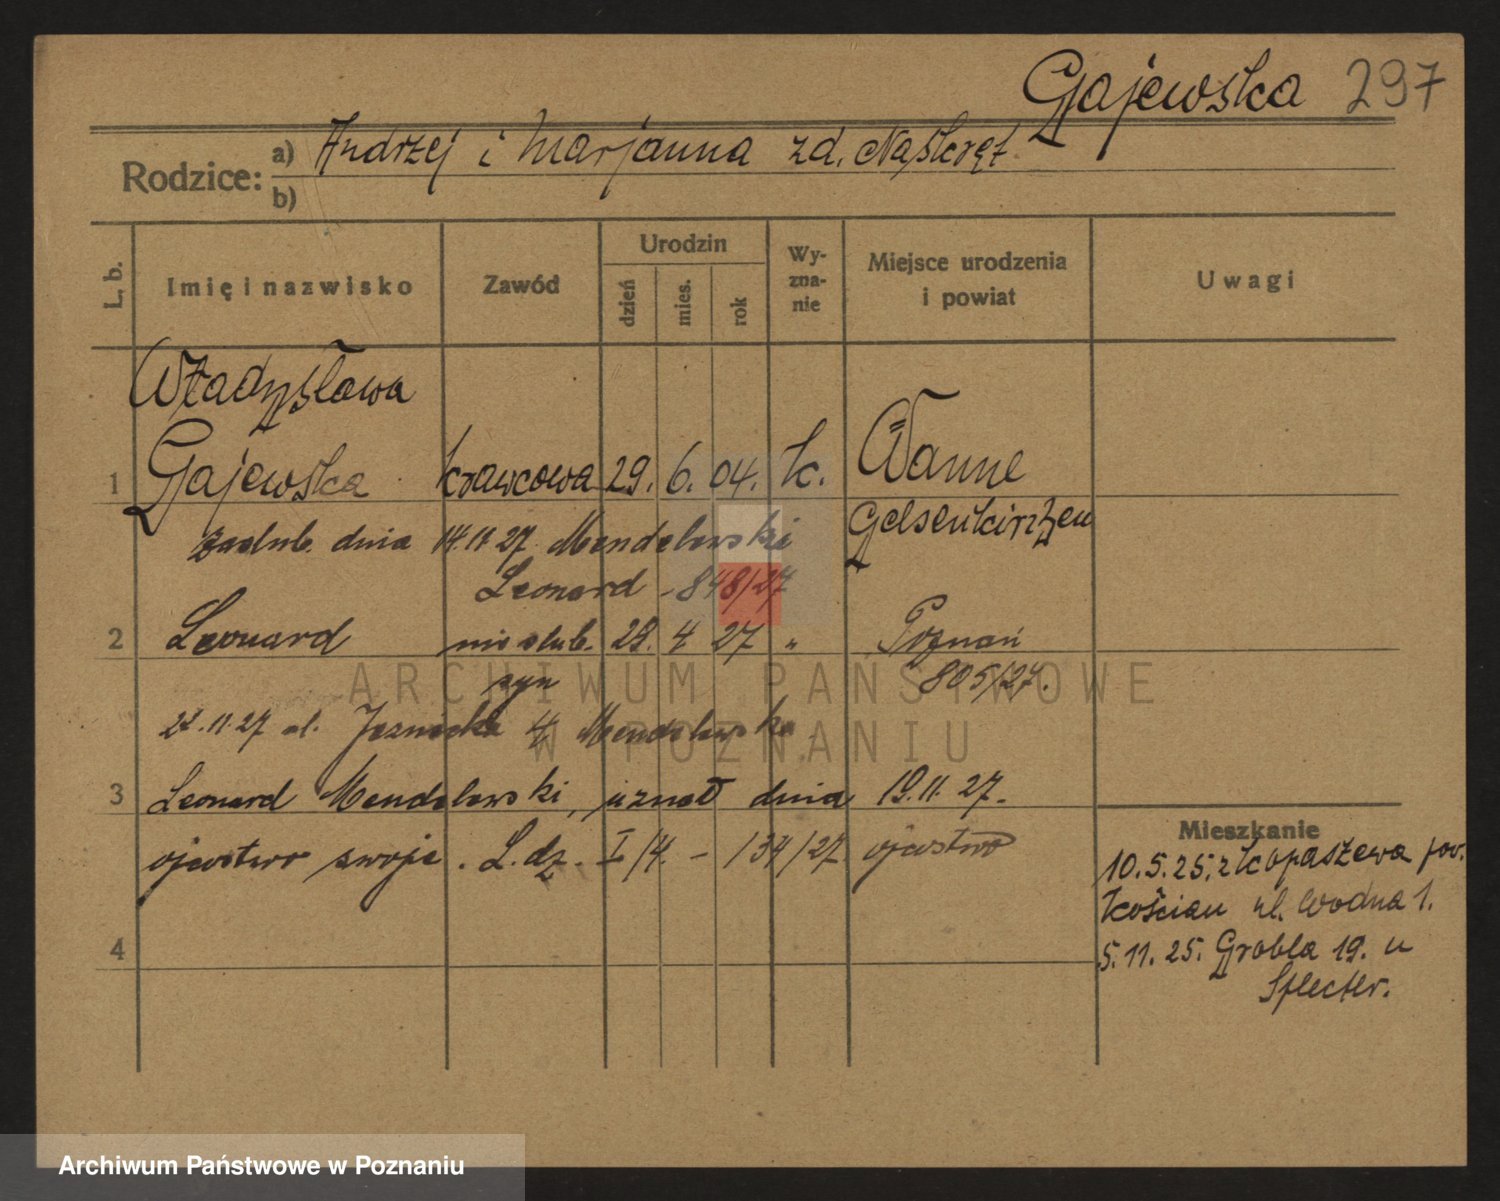 Gajewska 297
Rodzice: a) Andrzej i Marjanna zd. Naskręt
b)
L. b.
Imię i nazwisko
Zawód
Urodzin
dzień
mies.
rok
Wy-
zna-
nie
Miejsce urodzenia
i powiat
Uwagi
Władysława
1 Gajewska krawcowa 29. 6. 04. k. Wanne
Gelsenkirchen
zaślub. dnia 14.11.27 Mendelewski
Leonard - 848/27
2 Leonard nieślub. 28. 4 27 " Poznań
syn 805/27.
22.11.27 ul. 4 Mendelewska
3 Leonard Mendelewski, uznał dnia 19.11.27.
ojcostwo swoje. L. dz. I/4. - 134/27 ojcostwo
4
Mieszkanie
10.5.25. z Kopaszewa pow.
Kościan ul. Wodna 1.
5.11.25. Grobla 19. u
ARCHIWUM PAŃSTWOWE
W POZNANIU
Archiwum Państwowe w Poznaniu